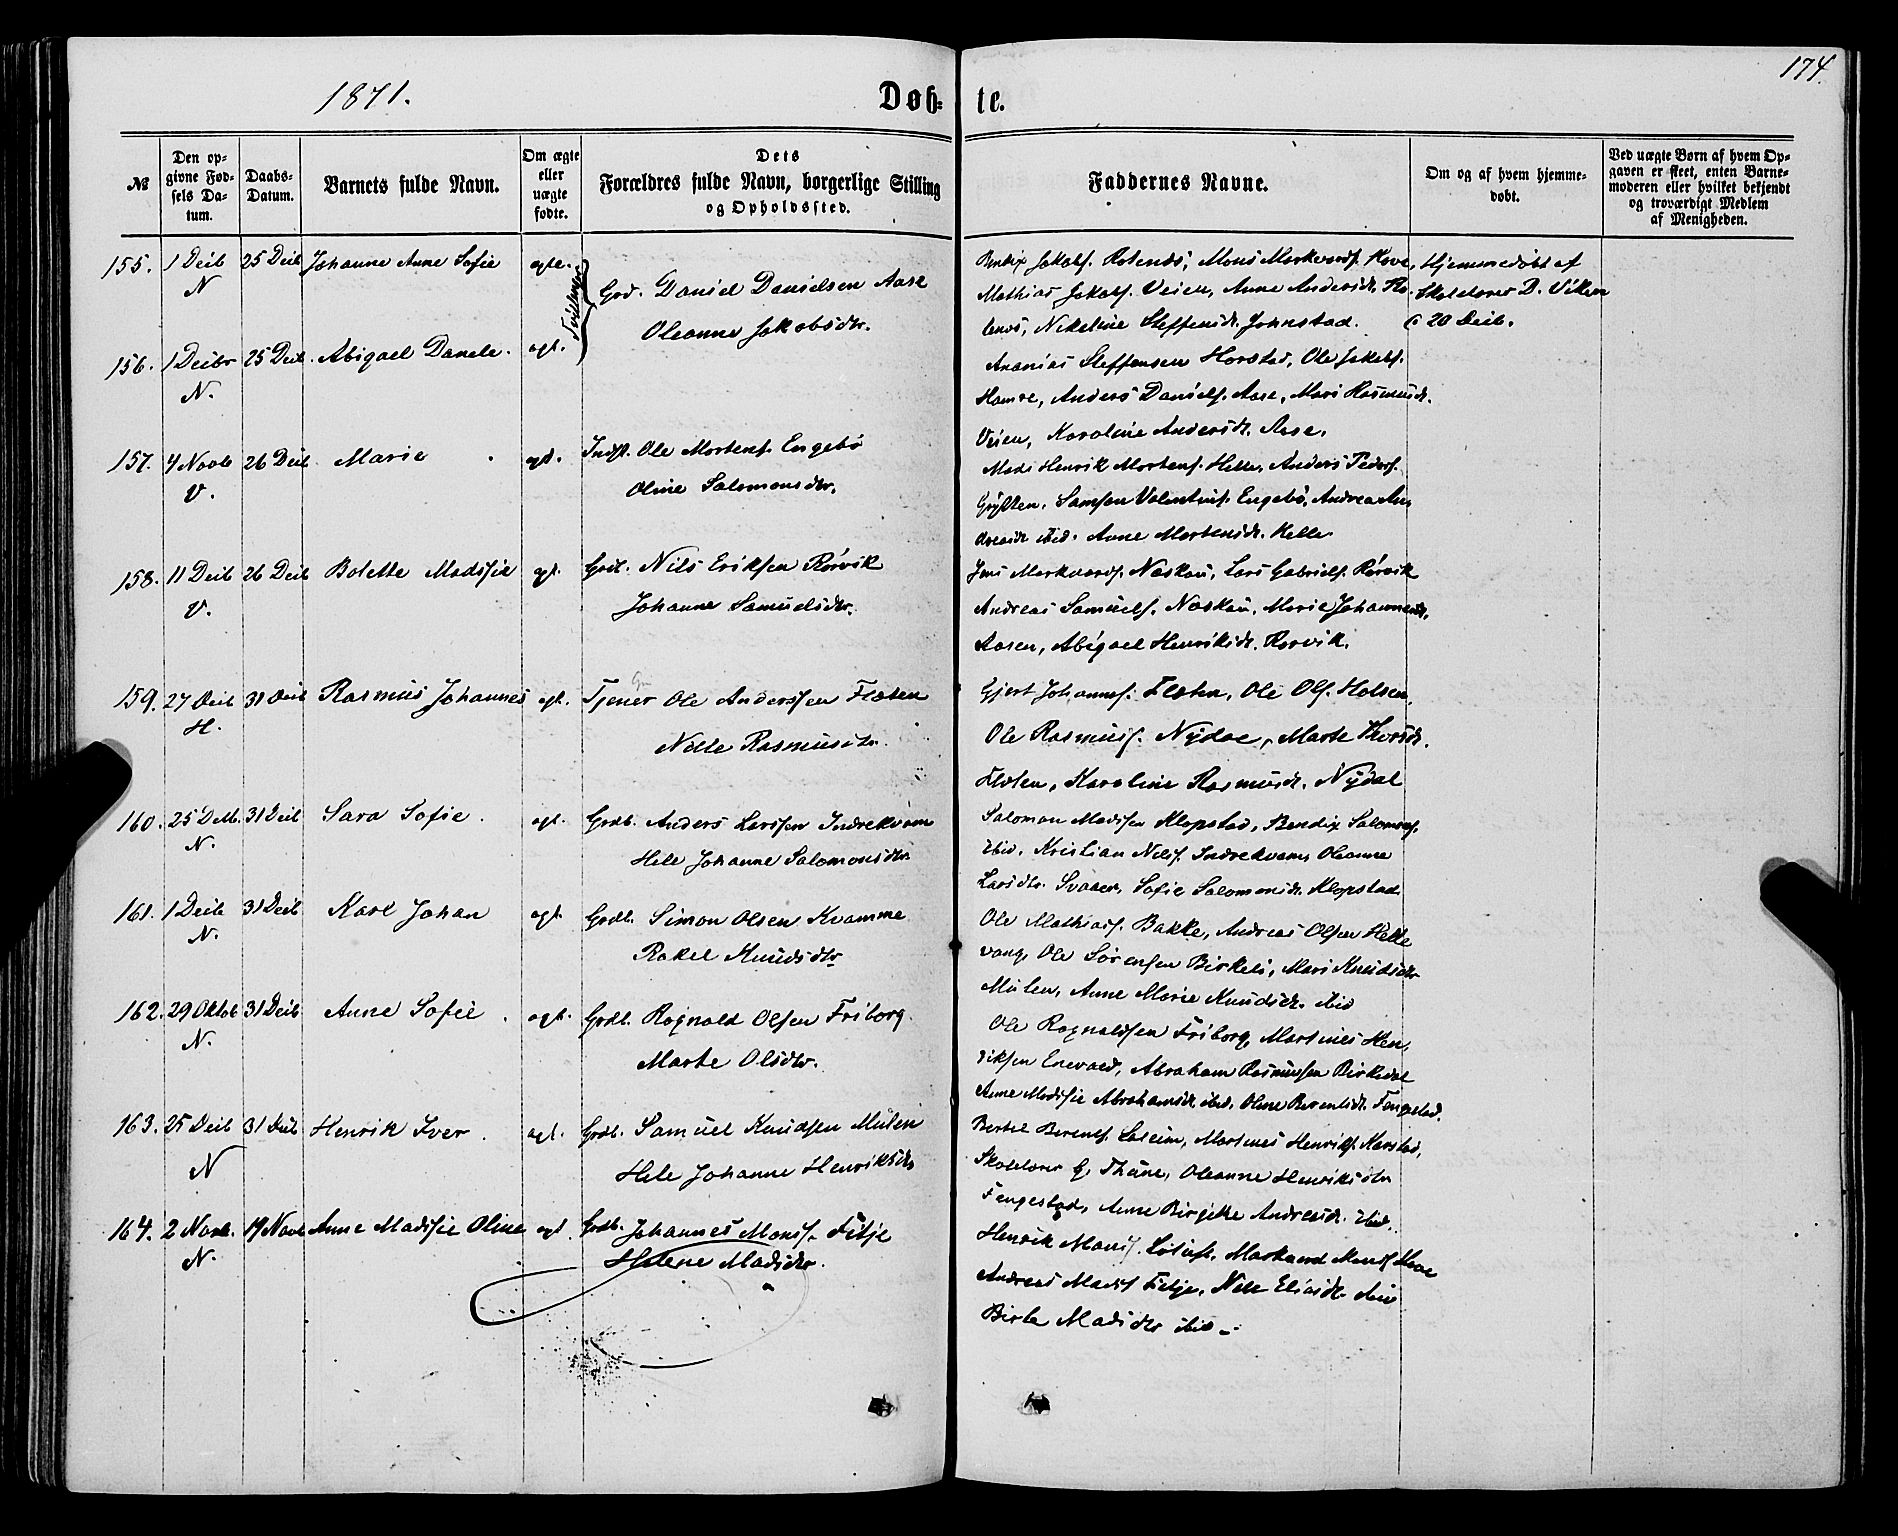 1871.
Døb-
te.
174.
№
Den op-
givne Fød-
sels Da-
tum.
Daabs-
Datum.
Barnets fulde Navn.
Om ægte
eller
uægte
fødte.
Dets
Forældres fulde Navn, borgerlige Stilling
og Opholdssted.
Faddernes Navne.
Om og af hvem hjemme-
døbt.
Ved uægte Børn af hvem Op-
gaven er skeet, enten Barne-
moderen eller hvilket bekjendt
og troværdigt Medlem
af Menigheden.
155. 1 Decb 25 Decb Johanne Anne Sofie ægte.
N
Tvillinger
Grd. Daniel Danielsen Aase
Oleanne Jakobsdtr.
Bendix Jakobs. Rolends, Mons Markvards. Hove,
Mathias Jakobs. Veien, Anne Andersdtr. Ro-
lends, Nikeline Steffensdtr. Johnstad.
Hjemmedøbt af
Skolelærer D. Viken
d 20 Decb.
156. 1 Decbr 25 Decb. Abigael Danele. ægt.
N.
Ananias Steffensen Horstad, Ole Jakobs.
Hamre, Anders Daniels. Aase, Mari Rasmusdtr.
Veien, Karoline Andersdtr. Aase.
157. 4 Novb 26 Decb. Marie ægt. Indst. Ole Mortens. Engebø
V. Oline Salomonsdtr.
Mads Henrik Mortens. Helle, Anders Peders.
Grytten, Samson Valentins. Engebø, Andrea An-
dreasdtr ibid. Anne Mortensdtr. Helle
158. 11 Decb 26 Decb Bolette Madssie ægt. Grdb. Nils Eriksen Rørvik
V. Johanne Samuelsdtr.
Jens Markvards. Naskau, Lars Gabriels. Rørvik
Andreas Samuels. Naskau, Marie Johannesdtr.
Aasen, Abigael Henriksdtr. Rørvik.
159. 27 Decb 31 Decb Rasmus Johannes ægt. Tjener Ole Anderssen Flaten
H. Nille Rasmusdtr.
Gjert Johannes. Flaten, Ole Ols. Holsen,
Ole Rasmuss. Nydal, Marte Iversdtr.
Flaten, Karoline Rasmusdtr. Nydal
160. 25 Decb. 31 Decb Sara Sofie. ægt. Grdb. Anders Larssen Indrekvam
N. Hele Johanne Salomonsdtr
Salomon Madssen Klopstad, Bendix Salomons.
ibid, Kristian Nils. Indrekvam, Oleanne
Larsdtr. Svaaer, Sofie Salomonsdtr. Klopstad
161. 1 Decb 31 Decb Karl Johan ægt. Grdb. Simon Olsen Kvamme
N. Rakel Knudsdtr
Ole Mathias. Bakke, Andreas Olsen Helle
vang, Ole Sørensen Birkeli, Mari Knudsdtr
Mulen, Anne Marie Knudsdtr. ibid
162. 29 Oktob 31 Decb Anne Sofie. ægt. Grdb. Ragnald Olsen Friborg.
N. Marte Olsdtr.
Ole Ragnaldsen Friborg, Martines Hen-
riksen Enevald, Abraham Rasmussen Birkedal
Anne Madssie Abrahamsdtr ibid, Oline Berentsdtr. Fengestad.
163. 25 Decb 31 Decb Henrik Iver. ægt. Grdb. Samuel Knudsen Mulen
N Hele Johanne Henriksdtr
Bertel Berents. Løseim, Martines Henriks. Karstad,
Skolelærer G. Thune, Oleanne Henriksdtr
Fengestad, Anne Birgitte Andreasdtr. ibid.
164. 2 Novb. 19 Novb Anne Madssie Oline ægt. Grdb. Johannes Mons. Fitje
N. Helene Madsdtr.
Henrik Mons. Markvard Mons. Hove
Andreas Mads. Fitje, Nille Eliasdtr.
Birte Madsdtr ibid.